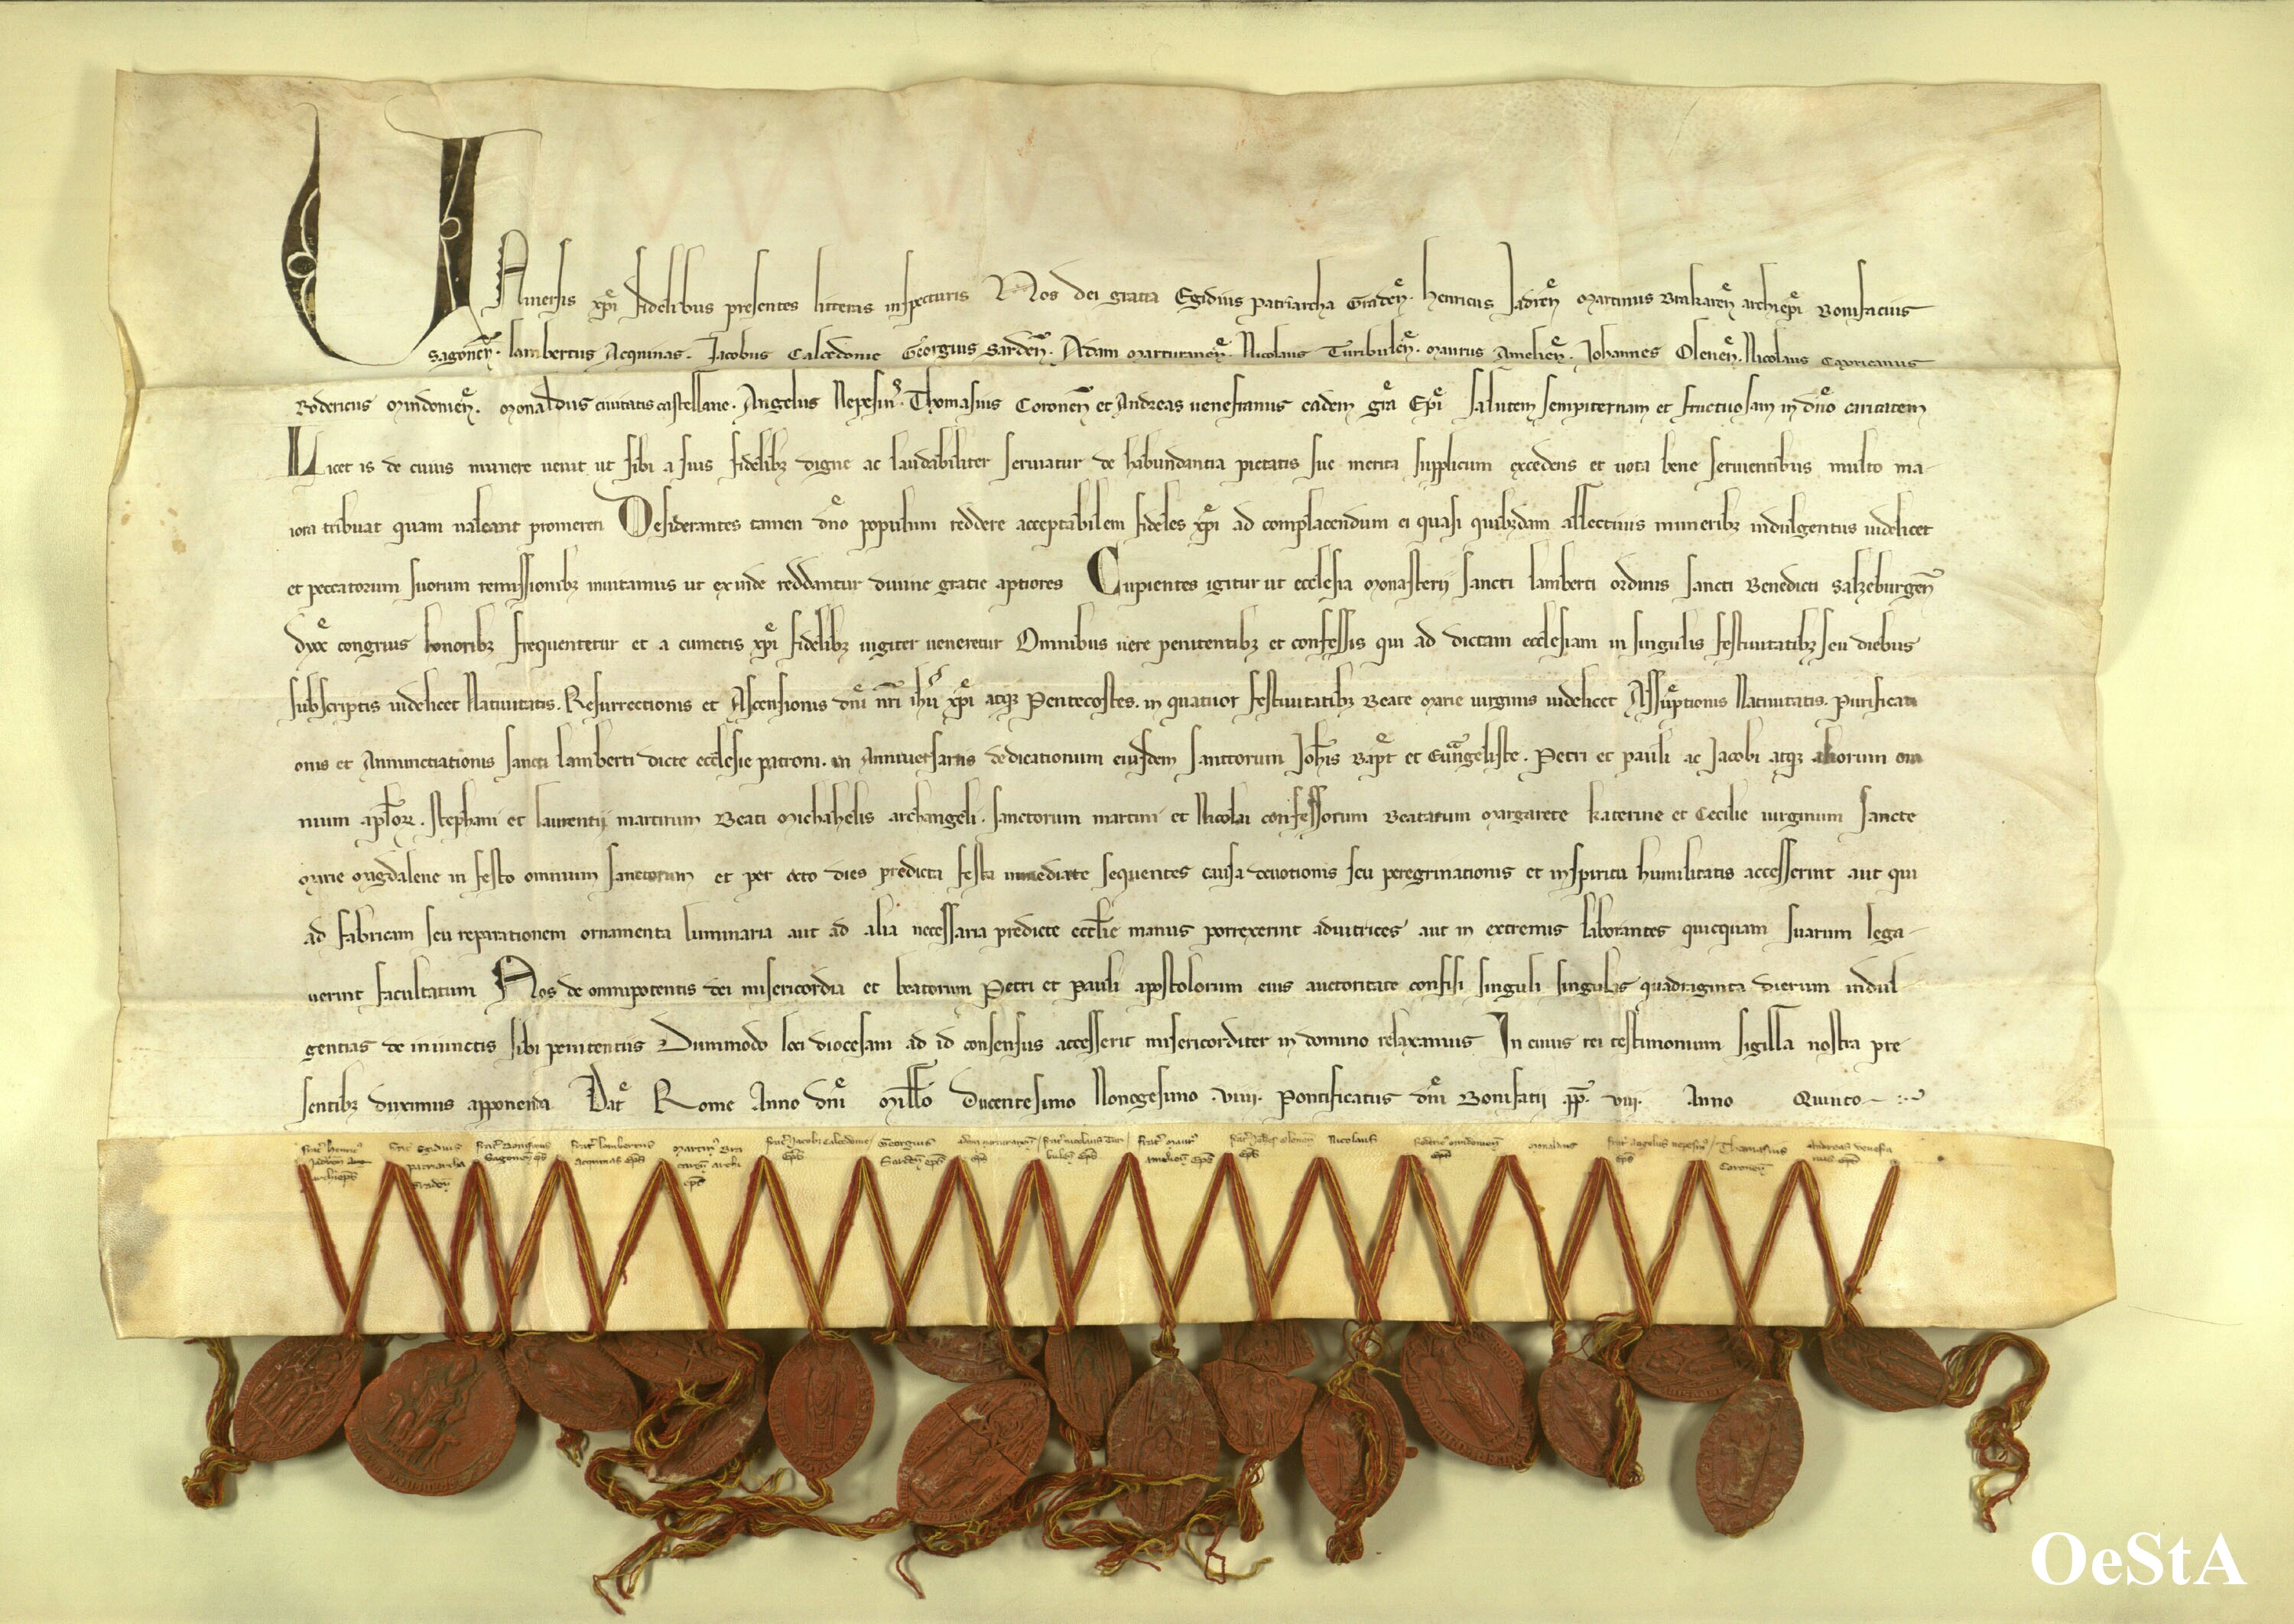 UNiuersis xp̄i fidelibus presentes litteras inspecturis Nos dei gratia Egidius patriarcha Gradeñ. Henricus Jadreñ Martinus Brakareñ archiep̄i Bonifacius
Sagoneñ. lambertus Acquinas. Jacobus Calcedonie Georgius Sardeñ. Adam Marturaneñ. Nicolaus Turibuleñ. Maurus Amelieñ. Johannes Oleneñ. Nicolaus Capricanus
Rodericus Mindonieñ. Monaldus ciuitatis castellane. Angelus Nepesiñ. Thomasius Coroneñ et Andreas uenefranus eadem grā Ep̄i salutem sempiternam et fructuosam in dn̄o caritatem
Licet is de cuius munere uenit ut sibi a suis fidelibꝫ digne ac laudabiliter seruiatur de habundantia pietatis sue merita supplicum excedens et uota bene seruientibus multo ma-
iora tribuat quam ualeant promereri Desiderantes tamen dn̄o populum reddere acceptabilem fideles xp̄i ad complacendum ei quasi quibꝫdam allectiuis muneribꝫ indulgentiis uidelicet
et peccatorum suorum remissionibꝫ inuitamus ut exinde reddantur diuine gratie aptiores Cupientes igitur ut ecclesia Monasterij sancti lamberti ordinis sancti Benedicti Salzeburgeñ
dyoc̄ congruis honoribꝫ frequentetur et a cunctis xp̄i fidelibꝫ iugiter ueneretur Omnibus uere penitentibꝫ et confessis qui ad dictam ecclesiam in singulis festiuitatibꝫ seu diebus
subscriptis uidelicet Natiuitatis. Resurrectionis et Ascensionis dn̄i nr̄i ih̄u xp̄i atqꝫ Pentecostes. in quatuor festiuitatibꝫ Beate Marie uirginis uidelicet Assūptionis Natiuitatis. Purificati
onis et Annunctiationis sancti lamberti dicte ecclesie patroni. in Anniuersariis dedicationum eiusdem sanctorum Joh̄is Bapt̄ et Euāgeliste. Petri et pauli ac Jacobi atqꝫ aliorum om
nium apl̄oꝝ. Stephani et laurentij martirum Beati Michahelis archangeli. sanctorum martini et Nicolai confessorum Beatarum Margarete katerine et Cecilie uirginum sancte
Marie Magdalene in festo omnium sanctorum et per octo dies predicta festa inmediate sequentes causa deuotionis seu peregrinationis et inspiritu humilitatis accesserint aut qui
ad fabricam seu reparationem ornamenta luminaria aut ad alia necessaria predicte eccl̄ie manus porrexerint adiutrices aut in extremis laborantes quicquam suarum lega-
uerint facultatum Nos de omnipotentis dei misericordia et beatorum Petri et pauli apostolorum eius auctoritate confisi singuli singulis quadraginta dierum indul-
gentias de iniunctis sibi penitentiis Dummodo loci diocesani ad id consensus accesserit misericorditer in domino relaxamus In cuius rei testimonium sigilla nostra pre-
sentibꝫ duximus apponenda Dat̄ Rome Anno dn̄i Mill̄o Ducentesimo Nonogesimo .viiij. Pontificatus dn̄i Bonifatij .pp̄. viij. Anno Quinto
frat̄ Henric̄ Jadreñ archiep̄s
frat̄ Egidius patriarcha Gradeñ
frat̄ Bonifacius Sagoneñ ep̄s
frat̄ lambertus acquinas ep̄s
Martin̄ Bracareñ archiep̄s
frat̄ Jacob̄ Calcedonie ep̄s
Georgius Sardeñ ep̄s
Adam Marturaneñ ep̄s
frat̄ nicolaus Turibuleñ ep̄s
frat̄ Maur̄ Amelieñ ep̄s
frat̄ Joh̄es oleneñ ep̄s
Nicolaus
Roderic̄ mindonieñ ep̄s
Monaldus
frat̄ angelus nepesiñ ep̄s
Thomasius Coroneñ
Andreas Venefranus ep̄s
OeStA